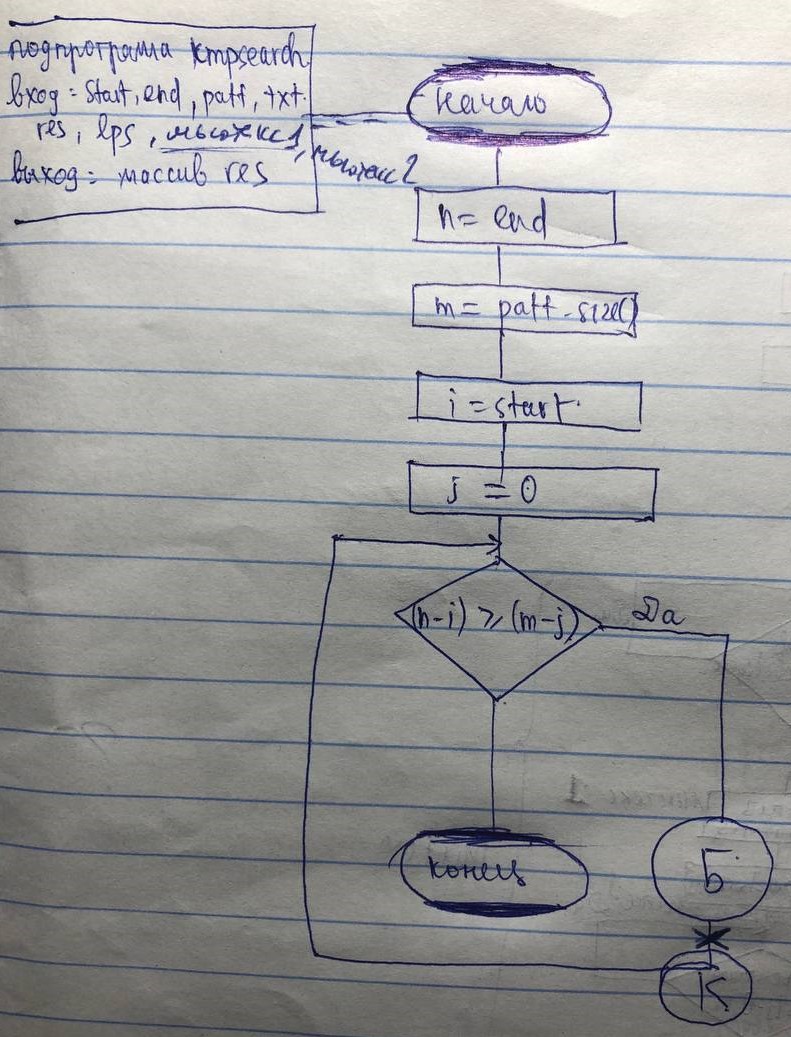 подпрограма kmpsearch
вход = start, end, patt, txt.
res, lps, мьютекс1, мьютекс2
выход = массив res
начало
n= end
m= patt.size()
i = start.
j = 0
(n-i) ≥ (m-j)
Да
конец
Б
К